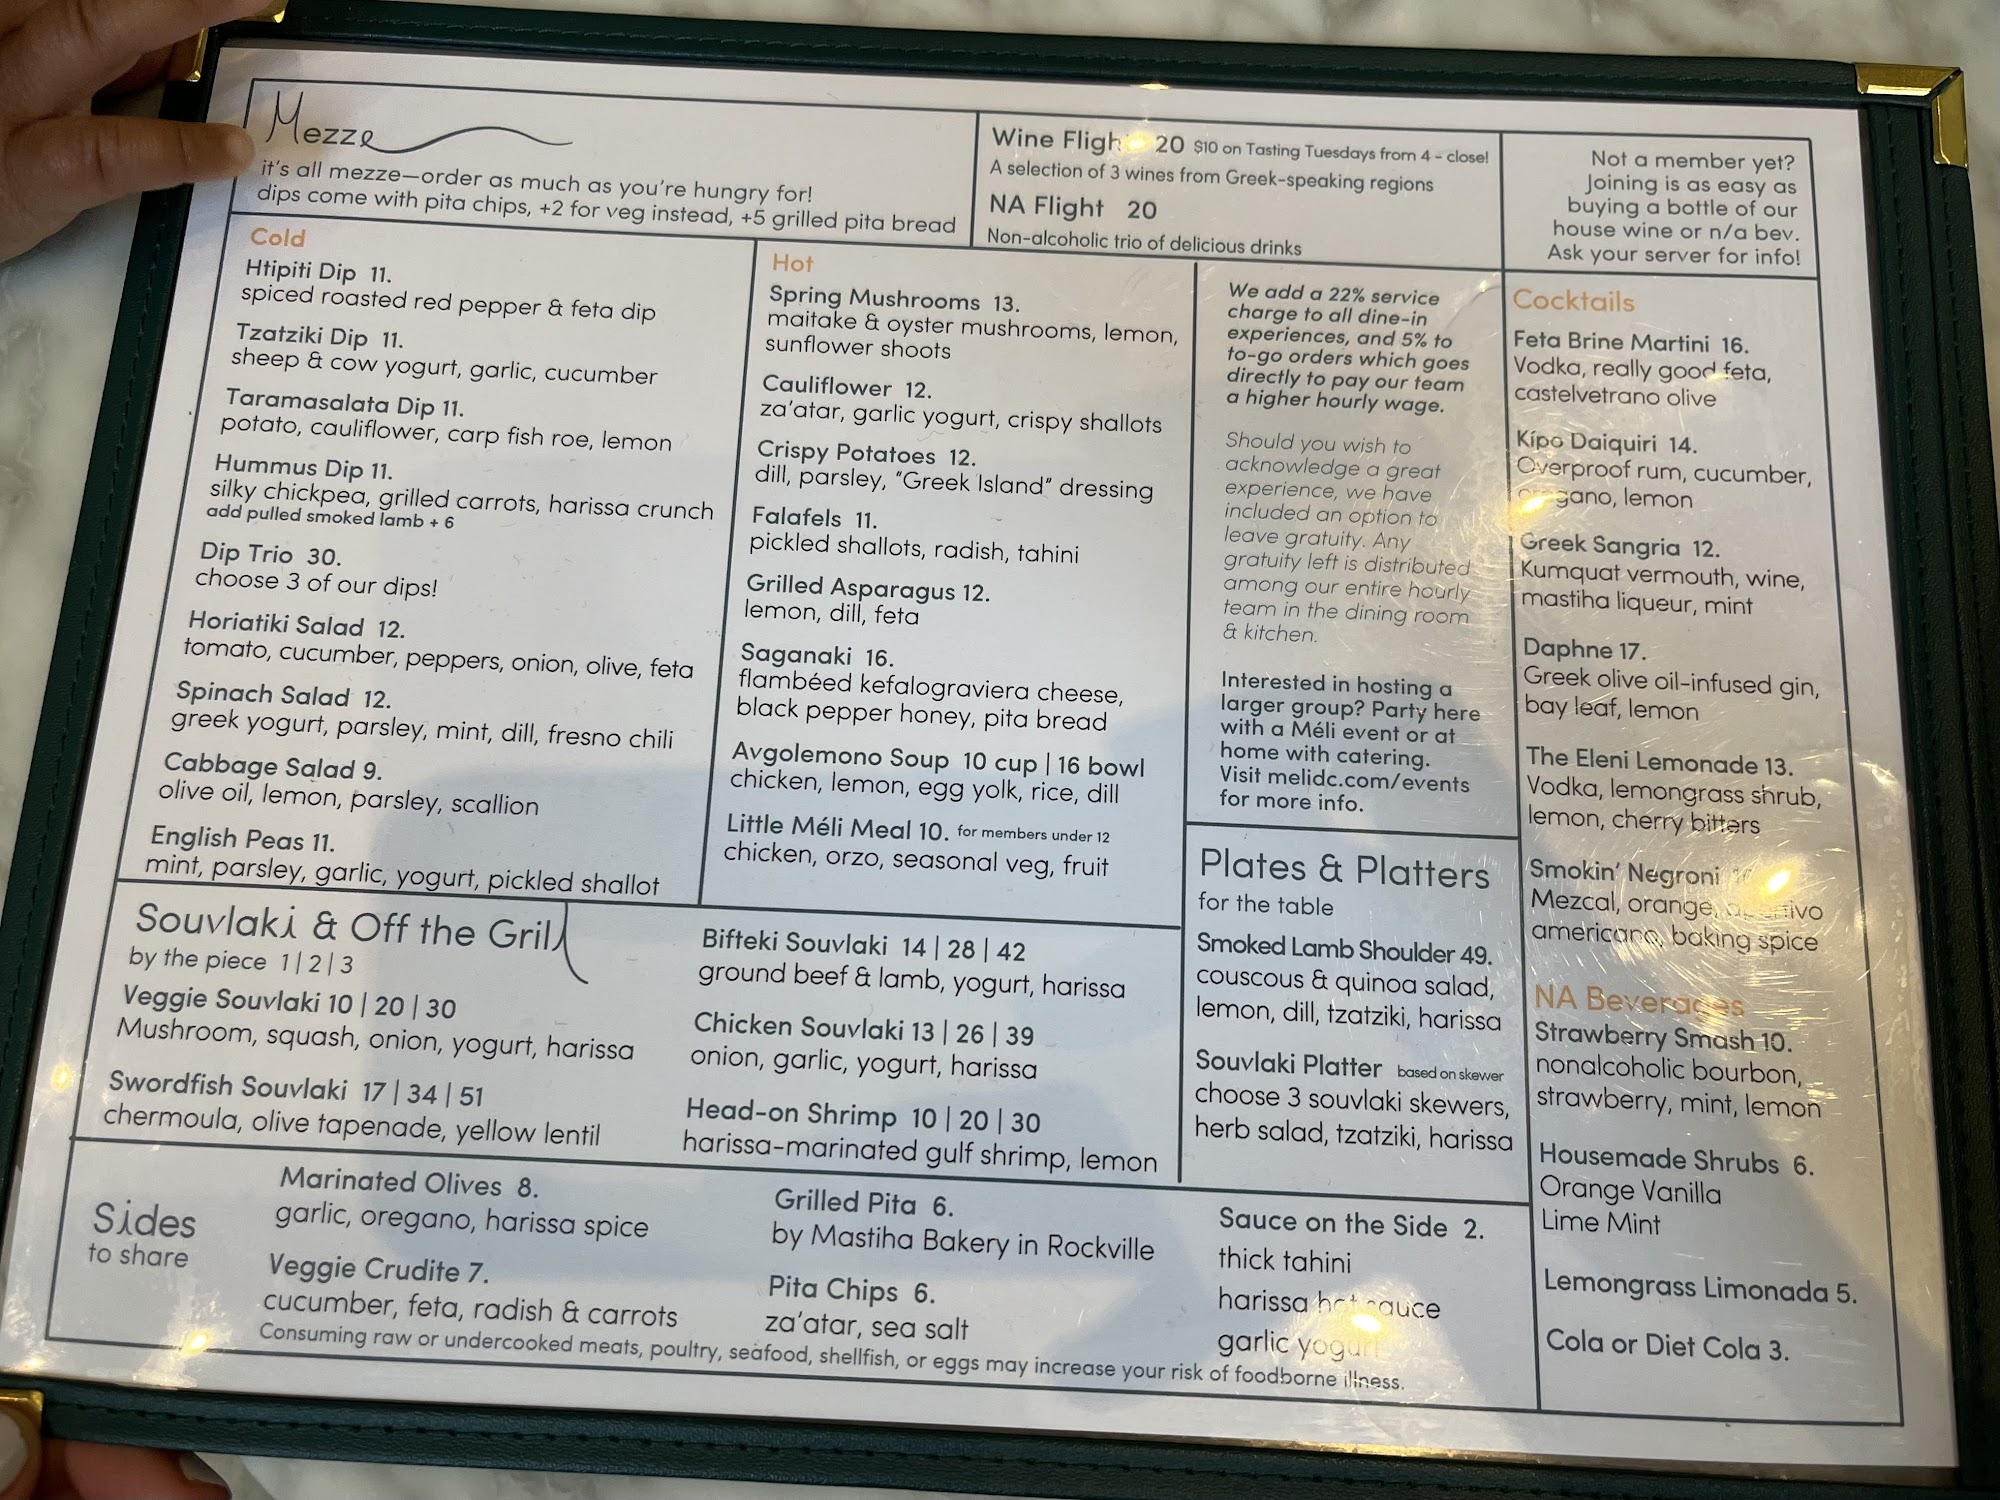 Mezze
it's all mezze—order as much as you're hungry for!
dips come with pita chips, +2 for veg instead, +5 grilled pita bread
Wine 20 $10 on Tasting Tuesdays from 4 - close!
A selection of 3 wines from Greek-speaking regions
NA Flight 20
Non-alcoholic trio of delicious drinks
Not a member yet?
Joining is as easy as
buying a bottle of our
house wine or n/a bev.
Ask your server for info!
Cold
Htipiti Dip 11.
spiced roasted red pepper & feta dip
Tzatziki Dip 11.
sheep & cow yogurt, garlic, cucumber
Taramasalata Dip 11.
potato, cauliflower, carp fish roe, lemon
Hummus Dip 11.
silky chickpea, grilled carrots, harissa crunch
add pulled smoked lamb + 6
Dip Trio 30.
choose 3 of our dips!
Horiatiki Salad 12.
tomato, cucumber, peppers, onion, olive, feta
Spinach Salad 12.
greek yogurt, parsley, mint, dill, fresno chili
Cabbage Salad 9.
olive oil, lemon, parsley, scallion
English Peas 11.
mint, parsley, garlic, yogurt, pickled shallot
Hot
Spring Mushrooms 13.
maitake & oyster mushrooms, lemon,
sunflower shoots
Cauliflower 12.
za'atar, garlic yogurt, crispy shallots
Crispy Potatoes 12.
dill, parsley, "Greek Island" dressing
Falafels 11.
pickled shallots, radish, tahini
Grilled Asparagus 12.
lemon, dill, feta
Saganaki 16.
flambéed kefalograviera cheese,
black pepper honey, pita bread
Avgolemono Soup 10 cup | 16 bowl
chicken, lemon, egg yolk, rice, dill
Little Méli Meal 10. for members under 12
chicken, orzo, seasonal veg, fruit
We add a 22% service
charge to all dine-in
experiences, and 5% to
to-go orders which goes
directly to pay our team
a higher hourly wage.
Should you wish to
acknowledge a great
experience, we have
included an option to
leave gratuity. Any
gratuity left is distributed
among our entire hourly
team in the dining room
& kitchen.
Interested in hosting a
larger group? Party here
with a Méli event or at
home with catering.
Visit melidc.com/events
for more info.
Plates & Platters
for the table
Smoked Lamb Shoulder 49.
couscous & quinoa salad,
lemon, dill, tzatziki, harissa
Souvlaki Platter based on skewer
choose 3 souvlaki skewers,
herb salad, tzatziki, harissa
Cocktails
Feta Brine Martini 16.
Vodka, really good feta,
castelvetrano olive
Kípo Daiquiri 14.
Overproof rum, cucumber,
oregano, lemon
Greek Sangria 12.
Kumquat vermouth, wine,
mastiha liqueur, mint
Daphne 17.
Greek olive oil-infused gin,
bay leaf, lemon
The Eleni Lemonade 13.
Vodka, lemongrass shrub,
lemon, cherry bitters
Smokin' Negroni
Mezcal, orange,
americano, baking spice
NA Beverages
Strawberry Smash 10.
nonalcoholic bourbon,
strawberry, mint, lemon
Housemade Shrubs 6.
Orange Vanilla
Lime Mint
Lemongrass Limonada 5.
Cola or Diet Cola 3.
Souvlaki & Off the Grill
by the piece 1 | 2 | 3
Veggie Souvlaki 10 | 20 | 30
Mushroom, squash, onion, yogurt, harissa
Swordfish Souvlaki 17 | 34 | 51
chermoula, olive tapenade, yellow lentil
Bifteki Souvlaki 14 | 28 | 42
ground beef & lamb, yogurt, harissa
Chicken Souvlaki 13 | 26 | 39
onion, garlic, yogurt, harissa
Head-on Shrimp 10 | 20 | 30
harissa-marinated gulf shrimp, lemon
Sides
to share
Marinated Olives 8.
garlic, oregano, harissa spice
Veggie Crudite 7.
cucumber, feta, radish & carrots
Grilled Pita 6.
by Mastiha Bakery in Rockville
Pita Chips 6.
za'atar, sea salt
Sauce on the Side 2.
thick tahini
harissa hot sauce
garlic yogurt
Consuming raw or undercooked meats, poultry, seafood, shellfish, or eggs may increase your risk of foodborne illness.